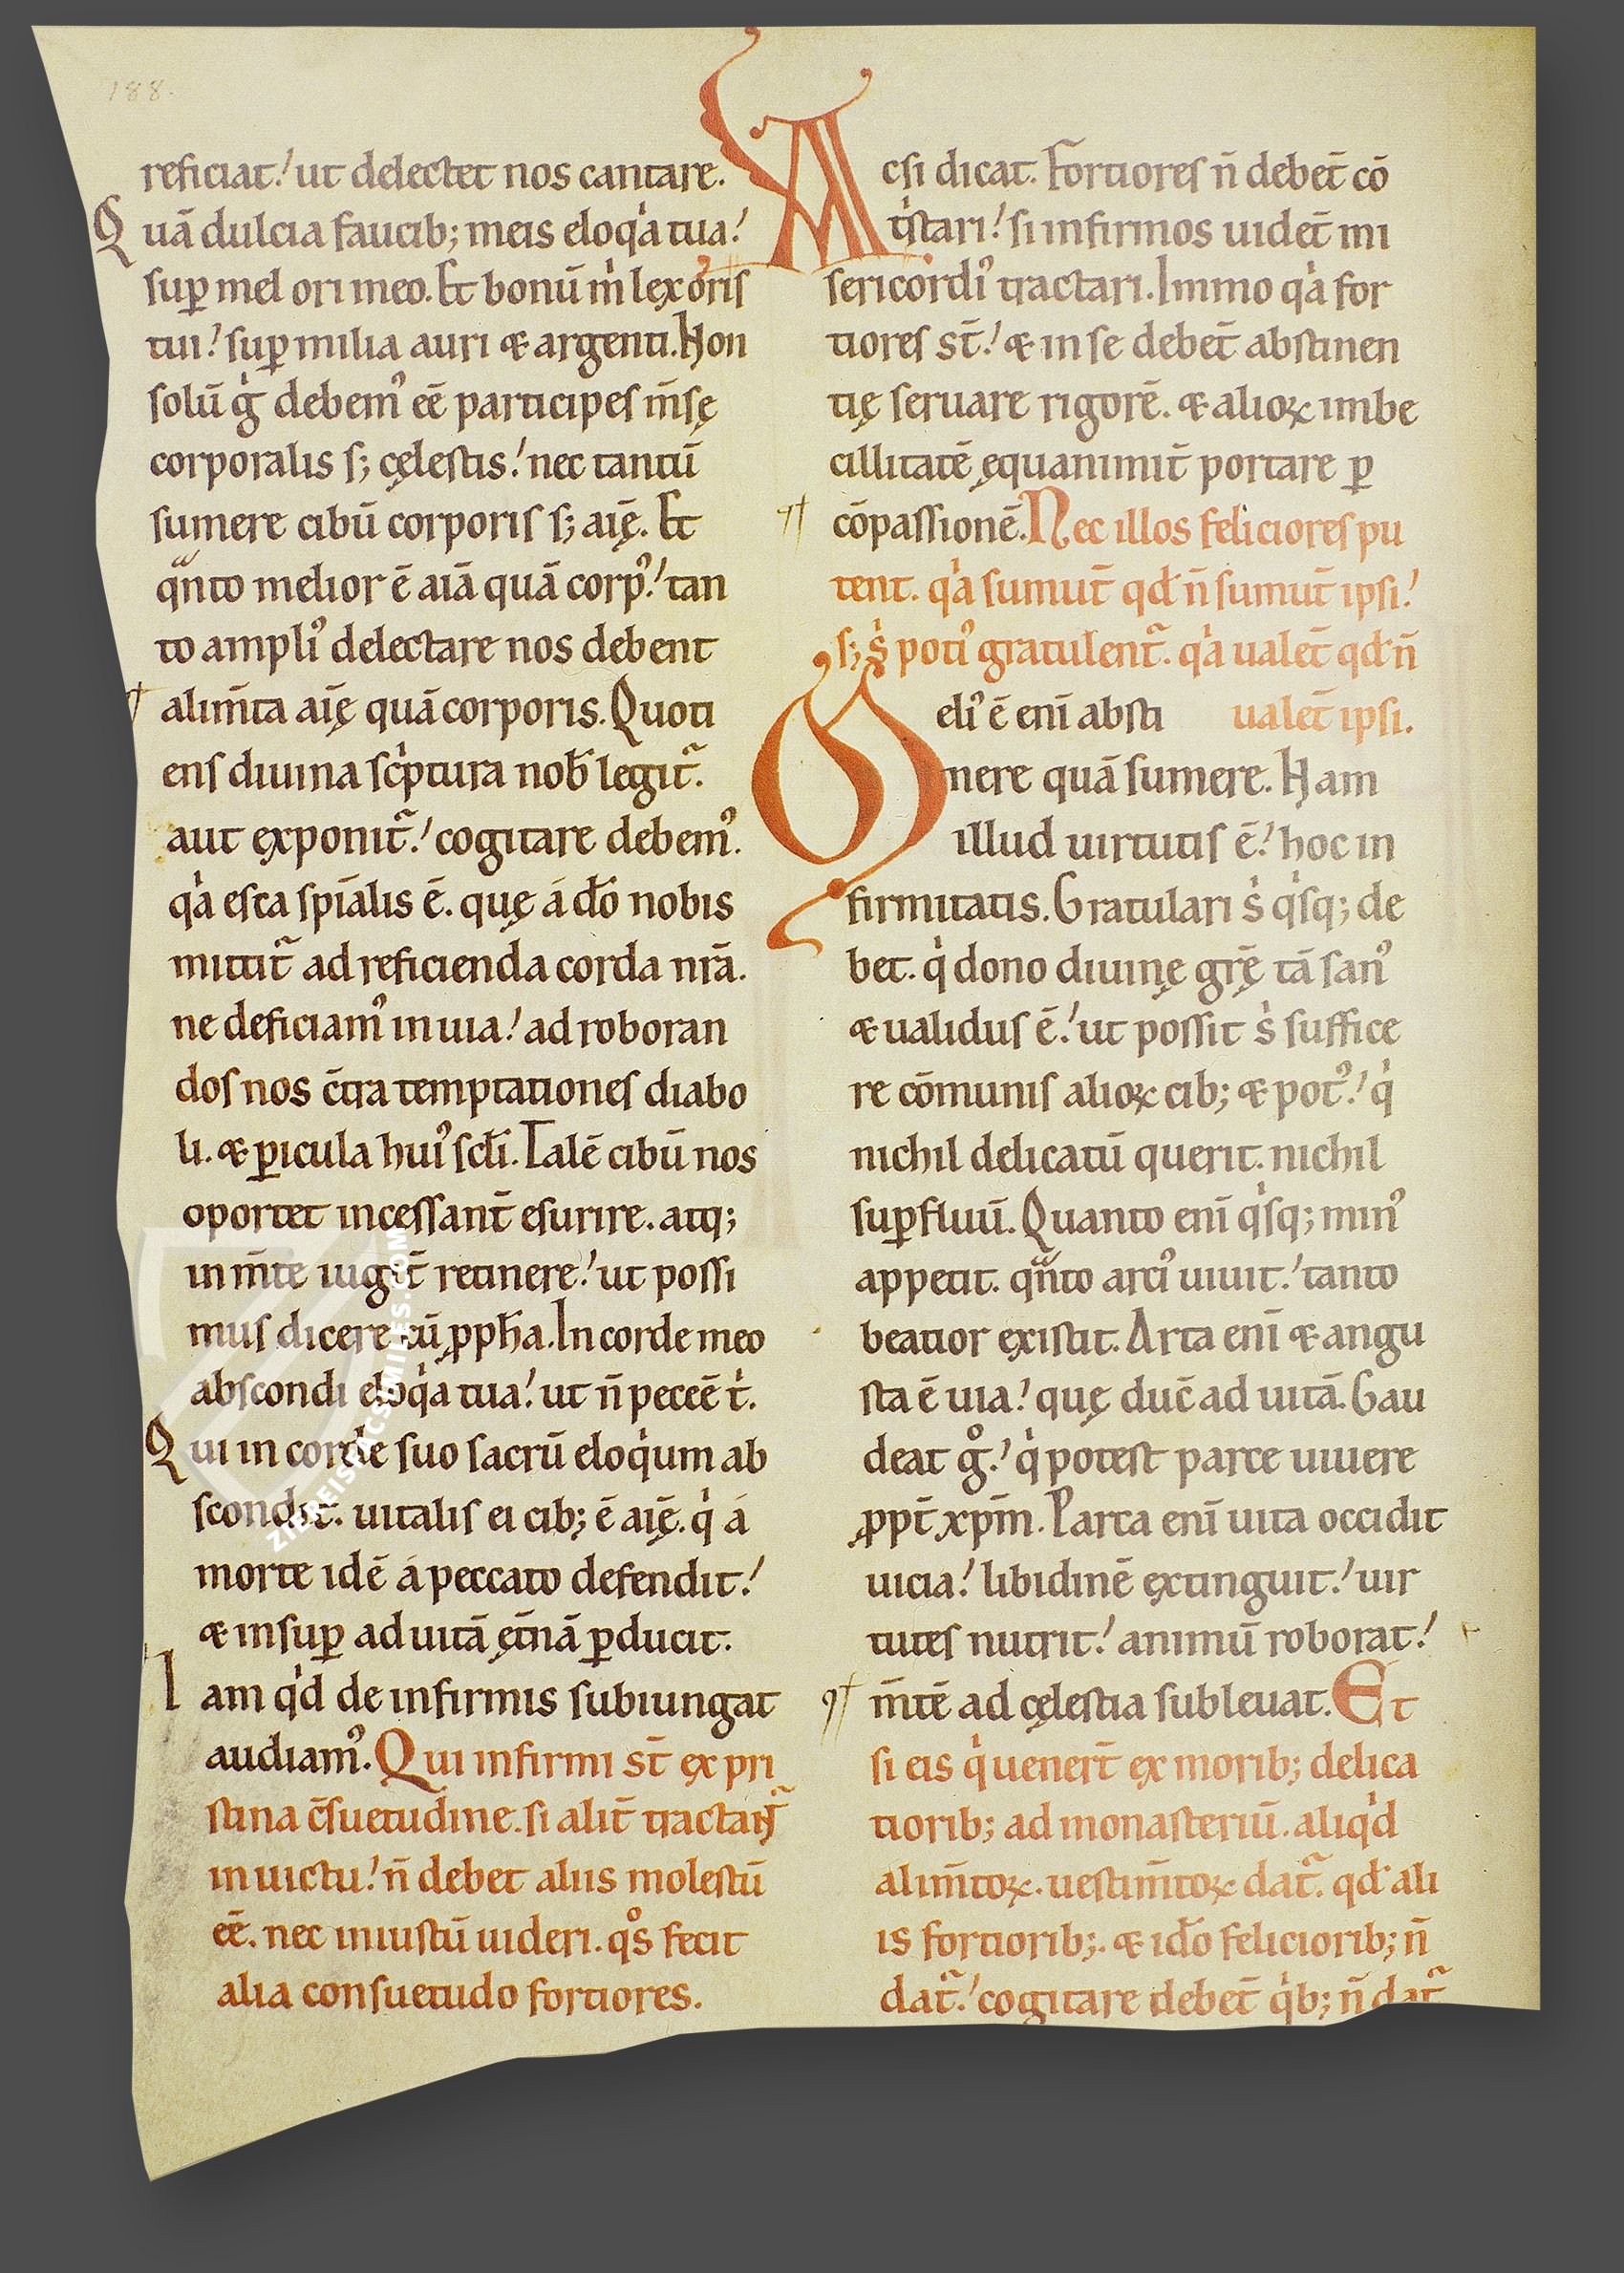 188.
reficiat! ut delectet nos cantare.
Quā dulcia faucib; meis eloqͥa tua!
suꝑ mel ori meo. Et bonū mͥ lex oris
tui! suꝑ milia auri & argenti. Non
solū gͥ debem᾽ eē participes m̄sę
corporalis s; cęlestis! nec tantū
sumere cibū corporis s; aīę. Et
qͣnto melior ē aīa quā corp᾽! tan
to ampli᾽ delectare nos debent
alim̄ta aīę quā corporis. Quoti
ens diuina scͥptura nob̄ legit᷑.
aut exponit᷑! cogitare debem᾽.
qͥa esca sp̄ialis ē. quę á dō nobis
mittit᷑ ad reficienda corda nr̄a.
ne deficiam᾽ in uia! ad roboran
dos nos c̄tra temptationes diabo
li. & ꝑicula hui᾽ scl̄i. Talē cibū nos
oportet incessant̄ esurire. atq;
in m̄te iugit̄ retinere! ut possi
mus dicere cū ꝓph̄a. In corde meo
abscondi eloqͥa tua! ut n̄ peccē tͥ.
Qui in corde suo sacrū eloqͥum ab
scondit. uitalis ei cib; ē aīę. qͥ á
morte idē á peccato defendit!
& insuꝑ ad uitā ęt̄nā ꝑducit.
Iam qͥd de infirmis subiungat
audiam᾽. Qui infirmi st̄ ex pri
stina c̄suetudine. si alit̄ tractant᷑
in uictu! n̄ debet aliis molestū
eē. nec iniustū uideri. qͦs fecit
alia consuetudo fortiores.
Acsi dicat. Fortiores n̄ debēt cō
tͥstari! si infirmos uidēt mi
sericordi᾽ tractari. Immo qͥa for
tiores st̄! & in se debēt abstinen
tię seruare rigorē. & alioꝝ imbe
cillitatē ęquanimit̄ portare ꝑ
cōpassionē. Nec illos feliciores pu
tent. qͥa sumūt qd̄ n̄ sumūt ipsi!
s; sͥ poti᾽ gratulent᷑. qͥa ualēt qd̄ n̄
ualēt ipsi.
Meli᾽ ē enī absti
nere quā sumere. Nam
illud uirtutis ē! hoc in
firmitatis. Gratulari sͥ qͥsq; de
bet. qͥ dono diuinę gr̄ę tā san᾽
& ualidus ē! ut possit sͥ suffice
re cōmunis alioꝝ cib; & pot᾽! qͥ
nichil delicatū querit. nichil
suꝑfluū. Quanto enī qͥsq; min᾽
appetit. qͣnto arti᾽ uiuit! tanto
beatior existit. Arta enī & angu
sta ē uia! quę duc̄ ad uitā. Gau
deat gͦ! qͥ potest parce uiuere
ꝓpt̄ xp̄m. Parca enī uita occidit
uicia! libidinē extinguit! uir
tutes nutrit! animū roborat!
m̄tē ad cęlestia subleuat. Et
si eis qͥ uenert̄ ex morib; delica
tiorib; ad monasteriū. aliqͥd
alim̄toꝝ. uestim̄toꝝ dat᷑. qd̄ ali
is fortiorib;. & idō feliciorib; n̄
dat᷑! cogitare debēt qͥb; n̄ dat᷑
ZIEREIS FACSIMILES.COM